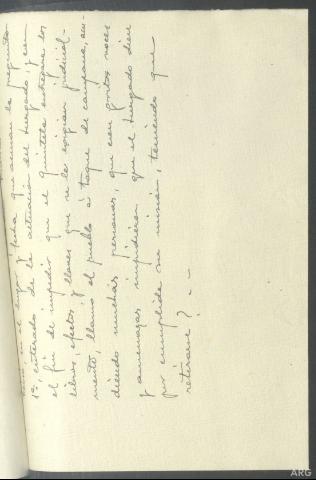 en el lugar y fecha que acusan la pregunta
1ª, enterado de la actuación del Juzgado y con
el fin de impedir que el Quintela entregara los
libros, efectos y llaves que se le exigían judicial-
mente, llamó al pueblo á toque de campana, acu-
diendo muchas personas, que con gritos, voces
y amenazas impidieron que el Juzgado diera
por cumplida su misión, teniendo que
retirarse? - -
ARG